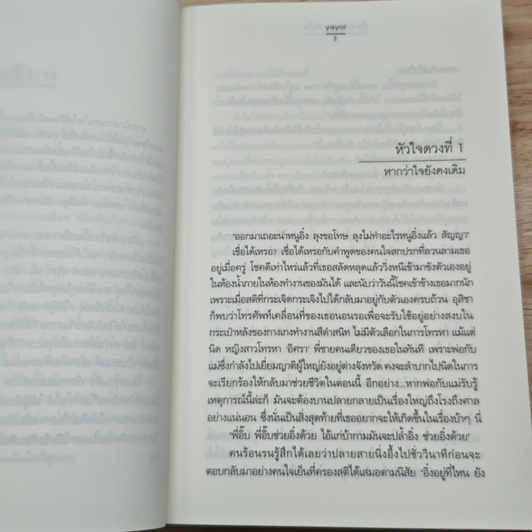 yayoi
7
หัวใจดวงที่ 1
หากว่าใจยังคงเดิม
"ออกมาเถอะน่าหนูอิ๋ง ลุงขอโทษ ลุงไม่ทำอะไรหนูอิ๋งแล้ว สัญญา"
เชื่อได้เหรอ? เชื่อได้เหรอกับคำพูดของคนใจสกปรกที่ลวนลามเธอ
อยู่เมื่อครู่ โชคดีเท่าไหร่แล้วที่เธอสลัดหลุดแล้ววิ่งหนีเข้ามาขังตัวเองอยู่
ในห้องน้ำภายในห้องทำงานของมันได้ และนับว่าวันนี้โชคเข้าข้างเธอมากนัก
เพราะเมื่อสติที่กระเจิดกระเจิงไปได้กลับมาอยู่กับตัวเองครบถ้วน อุสิชา
ก็พบว่าโทรศัพท์เคลื่อนที่ของเธอนอนรอเพื่อจะรับใช้อยู่อย่างสงบใน
กระเป๋าหลังของกางเกงทำงานสีดำสนิท ไม่มีตัวเลือกในการโทรหา แม้แต่
นิด หญิงสาวโทรหา 'อิศรา' พี่ชายคนเดียวของเธอในทันที เพราะพ่อกับ
แม่ซึ่งกำลังไปเยี่ยมญาติผู้ใหญ่ยังอยู่ต่างจังหวัด คงจะลำบากไปนิดในการ
จะเรียกร้องให้กลับมาช่วยชีวิตในตอนนี้ อีกอย่าง...หากพ่อกับแม่รับรู้
เหตุการณ์นี้ล่ะก็ มันจะต้องบานปลายกลายเป็นเรื่องใหญ่ถึงโรงถึงศาล
อย่างแน่นอน ซึ่งนั่นเป็นสิ่งสุดท้ายที่เธออยากจะให้เกิดขึ้นในเรื่องบ้าๆ นี่
"พี่อิ๊บ พี่อิ๊บช่วยอิ๋งด้วย ไอ้แก่บ้ากามมันจะปล้ำอิ๋ง ช่วยอิ๋งด้วย"
คนร้อนรนรู้สึกได้เลยว่าปลายสายนิ่งอึ้งไปชั่ววินาทีก่อนจะ
ตอบกลับมาอย่างคนใจเย็นที่ครองสติได้เสมอตามนิสัย "อิ๋งอยู่ที่ไหน ยัง